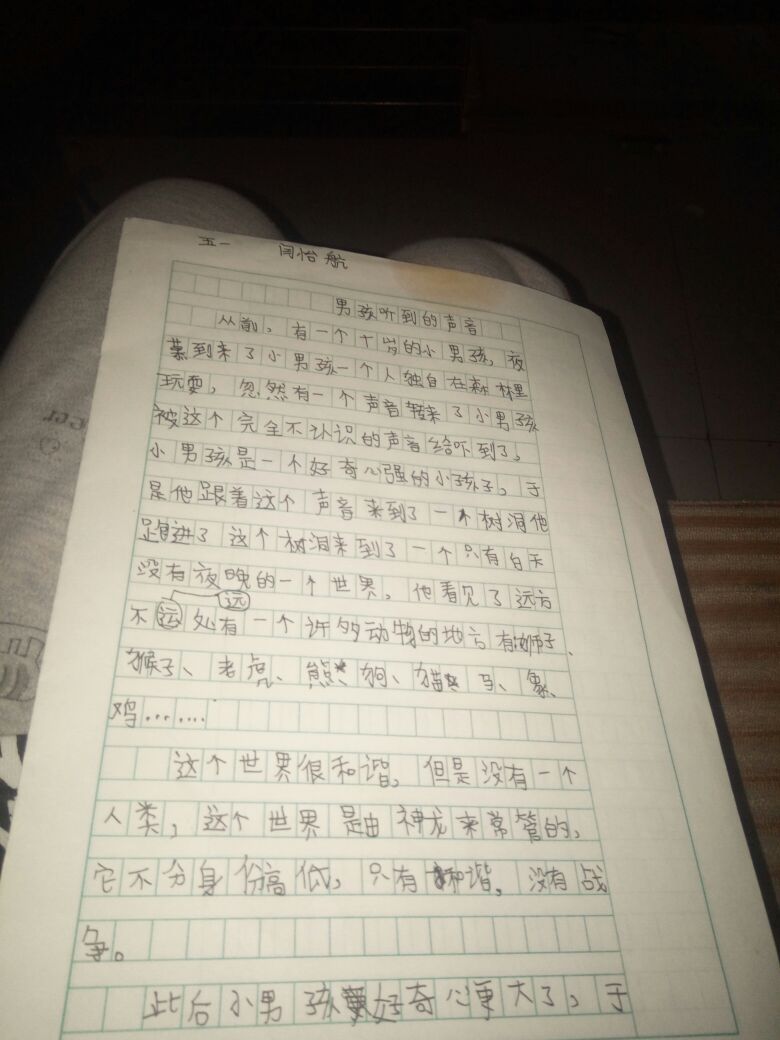 五一 闫怡航
男孩听到的声音
从前，有一个十岁的小男孩，夜
幕到来了小男孩一个人独自在森林里
玩耍，忽然有一个声音转来了小男孩
被这个完全不认识的声音给吓到了，
小男孩是一个好奇心强的小孩子，于
是他跟着这个声音来到了一个树洞他
跑进了这个树洞来到了一个只有白天
没有夜晚的一个世界，他看见了远方
远
不运处有一个许多动物的地方有狮子、
猴子、老虎、熊、狗、猫、马、象、
鸡……
这个世界很和谐，但是没有一个
人类，这个世界是由神龙来常管的，
它不分身份高低，只有和谐，没有战
争。
此后小男孩好奇心更大了，于